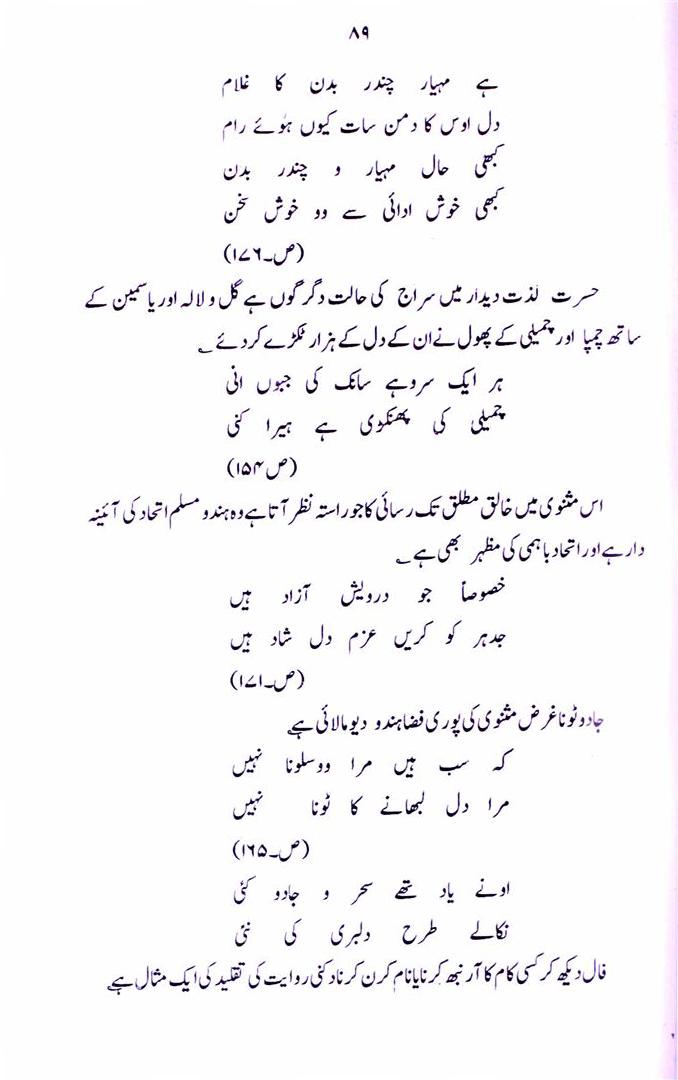 ۸۹
ہے مہیار چندر بدن کا غلام
دل اوس کا دمن سات کیوں ہوئے رام
کبھی حال مہیار و چندر بدن
کبھی خوش ادائی سے وو خوش سخن
(ص۔۱۷۶)
حسرت لذت دیدار میں سراج کی حالت دگرگوں ہے گل و لالہ اور یاسمین کے
ساتھ چمپا اور چمیلی کے پھول نے ان کے دل کے ہزار ٹکڑے کر دئے ؎
ہر ایک سرو ہے سانک کی جبوں انی
چمیلی کی پھنکڑی ہے ہیرا کنی
(ص۱۵۴)
اس مثنوی میں خالق مطلق تک رسائی کا جو راستہ نظر آتا ہے وہ ہندو مسلم اتحاد کی آئینہ
دار ہے اور اتحاد باہمی کی مظہر بھی ہے ؎
خصوصاً جو درویش آزاد ہیں
جدہر کو کریں عزم دل شاد ہیں
(ص۔۱۷۱)
جادو ٹونا غرض مثنوی کی پوری فضا ہندو دیو مالائی ہے۔
کہ سب ہیں مرا ووسلونا نہیں
مرا دل لبھانے کا ٹونا نہیں
(ص۔۱۶۵)
اونے یاد تھے سحر و جادو کئی
نکالے طرح دلبری کی نئی
فال دیکھ کر کسی کام کا آرنبھ کرنا یا نام کرن کرنا دکنی روایت کی تقلید کی ایک مثال ہے۔